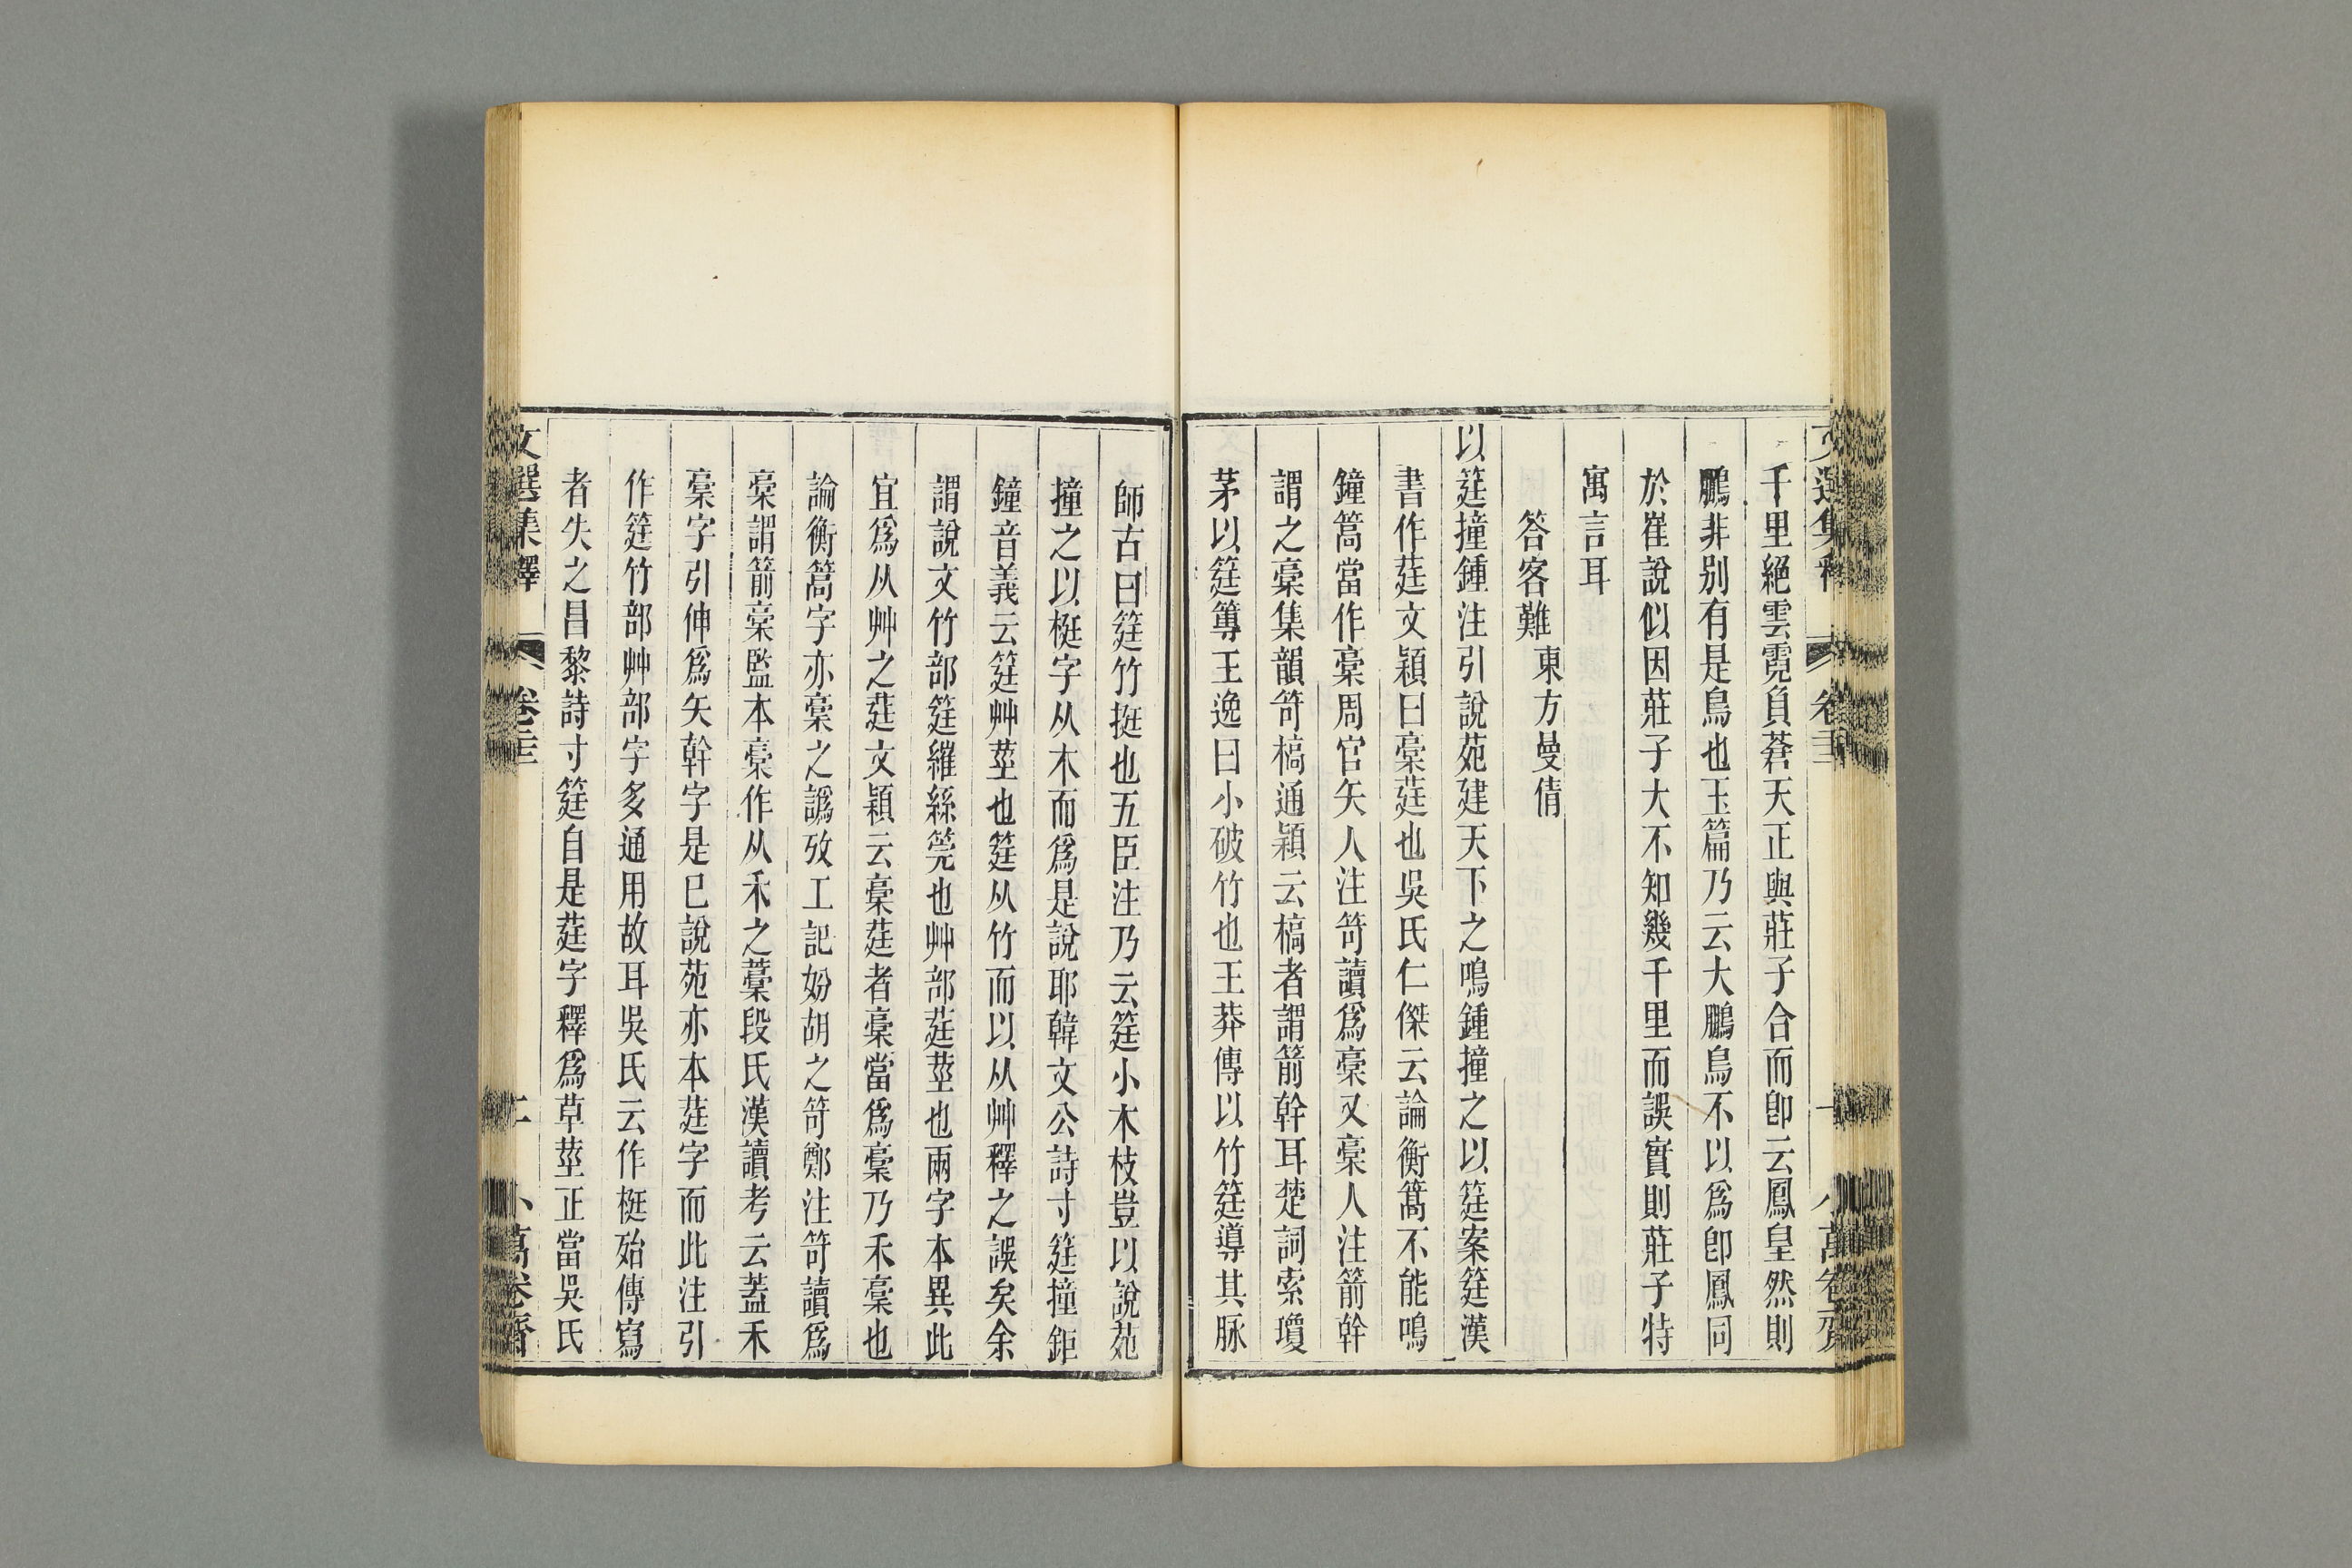 千里絕雲霓負蒼天正與莊子合而卽云鳳皇然則
鵬非別有是鳥也玉篇乃云大鵬鳥不以爲卽鳳同
於崔說似因莊子大不知幾千里而誤實則莊子特
寓言耳
答客難 東方曼倩
以筳撞鍾注引說苑建天下之鳴鍾撞之以筳案筳漢
書作莛文穎曰稾莛也吳氏仁傑云論衡篙不能鳴
鐘篙當作稾周官矢人注笴讀爲稾又稾人注箭幹
謂之稾集韻笴槁通穎云槁者謂箭幹耳楚詞索瓊
茅以筳篿王逸曰小破竹也王莽傳以竹筳導其脈
師古曰筳竹挺也五臣注乃云筳小木枝豈以說苑
撞之以梃字从木而爲是說耶韓文公詩寸筳撞鉅
鐘音義云筳艸莖也筳从竹而以从艸釋之誤矣余
謂說文竹部筳繀絲筦也艸部莛莖也兩字本異此
宜爲从艸之莛文穎云稾莛者稾當爲稾乃禾稾也
論衡篙字亦稾之譌攷工記妢胡之笴鄭注笴讀爲
稾謂箭稾監本稾作从禾之藁段氏漢讀考云蓋禾
稾字引伸爲矢幹字是巳說苑亦本莛字而此注引
作筳竹部艸部字多通用故耳吳氏云作梃殆傳寫
者失之昌黎詩寸筳自是莛字釋爲草莖正當吳氏
文選集釋 卷三 二 小萬卷齋